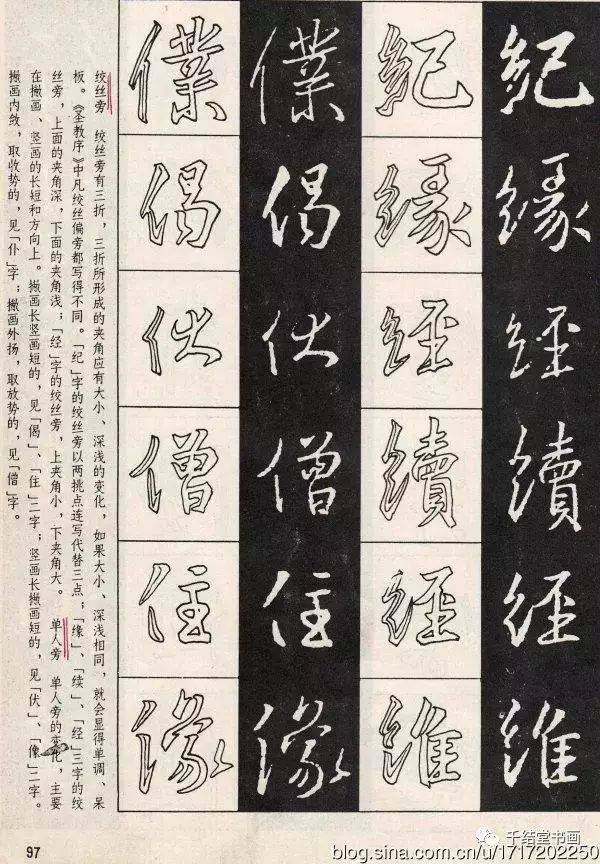 紀緣經續經維
紀緣經續經維
僕偈伏僧住像
僕偈伏僧住像
绞丝旁　绞丝旁有三折，三折所形成的夹角应有大小、深浅的变化，如果大小、深浅相同，就会显得单调、呆
板。《圣教序》中凡绞丝偏旁都写得不同。「纪」字的绞丝旁以两挑点连写代替三点；「缘」、「续」、「经」三字的绞
丝旁，上面的夹角深，下面的夹角浅；「经」字的绞丝旁，上夹角小，下夹角大。　单人旁　单人旁的变化，主要
在撇画、竖画的长短和方向上。撇画长竖画短的，见「偈」、「住」二字；竖画长撇画短的，见「伏」、「像」二字。
撇画内敛，取收势的，见「仆」字；撇画外扬，取放势的，见「僧」字。
97
千结堂书画
blog.sina.com.cn/u/1717202250